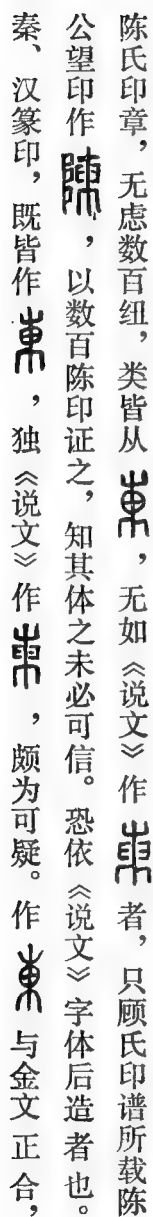 陈氏印章，无虑数百纽，类皆从東，无如《说文》作者，只顾氏印谱所载陈
公望印作陳，以数百陈印证之，知其体之未必可信。恐依《说文》字体后造者也。
秦、汉篆印，既皆作東，独《说文》作，颇为可疑。作東与金文正合，